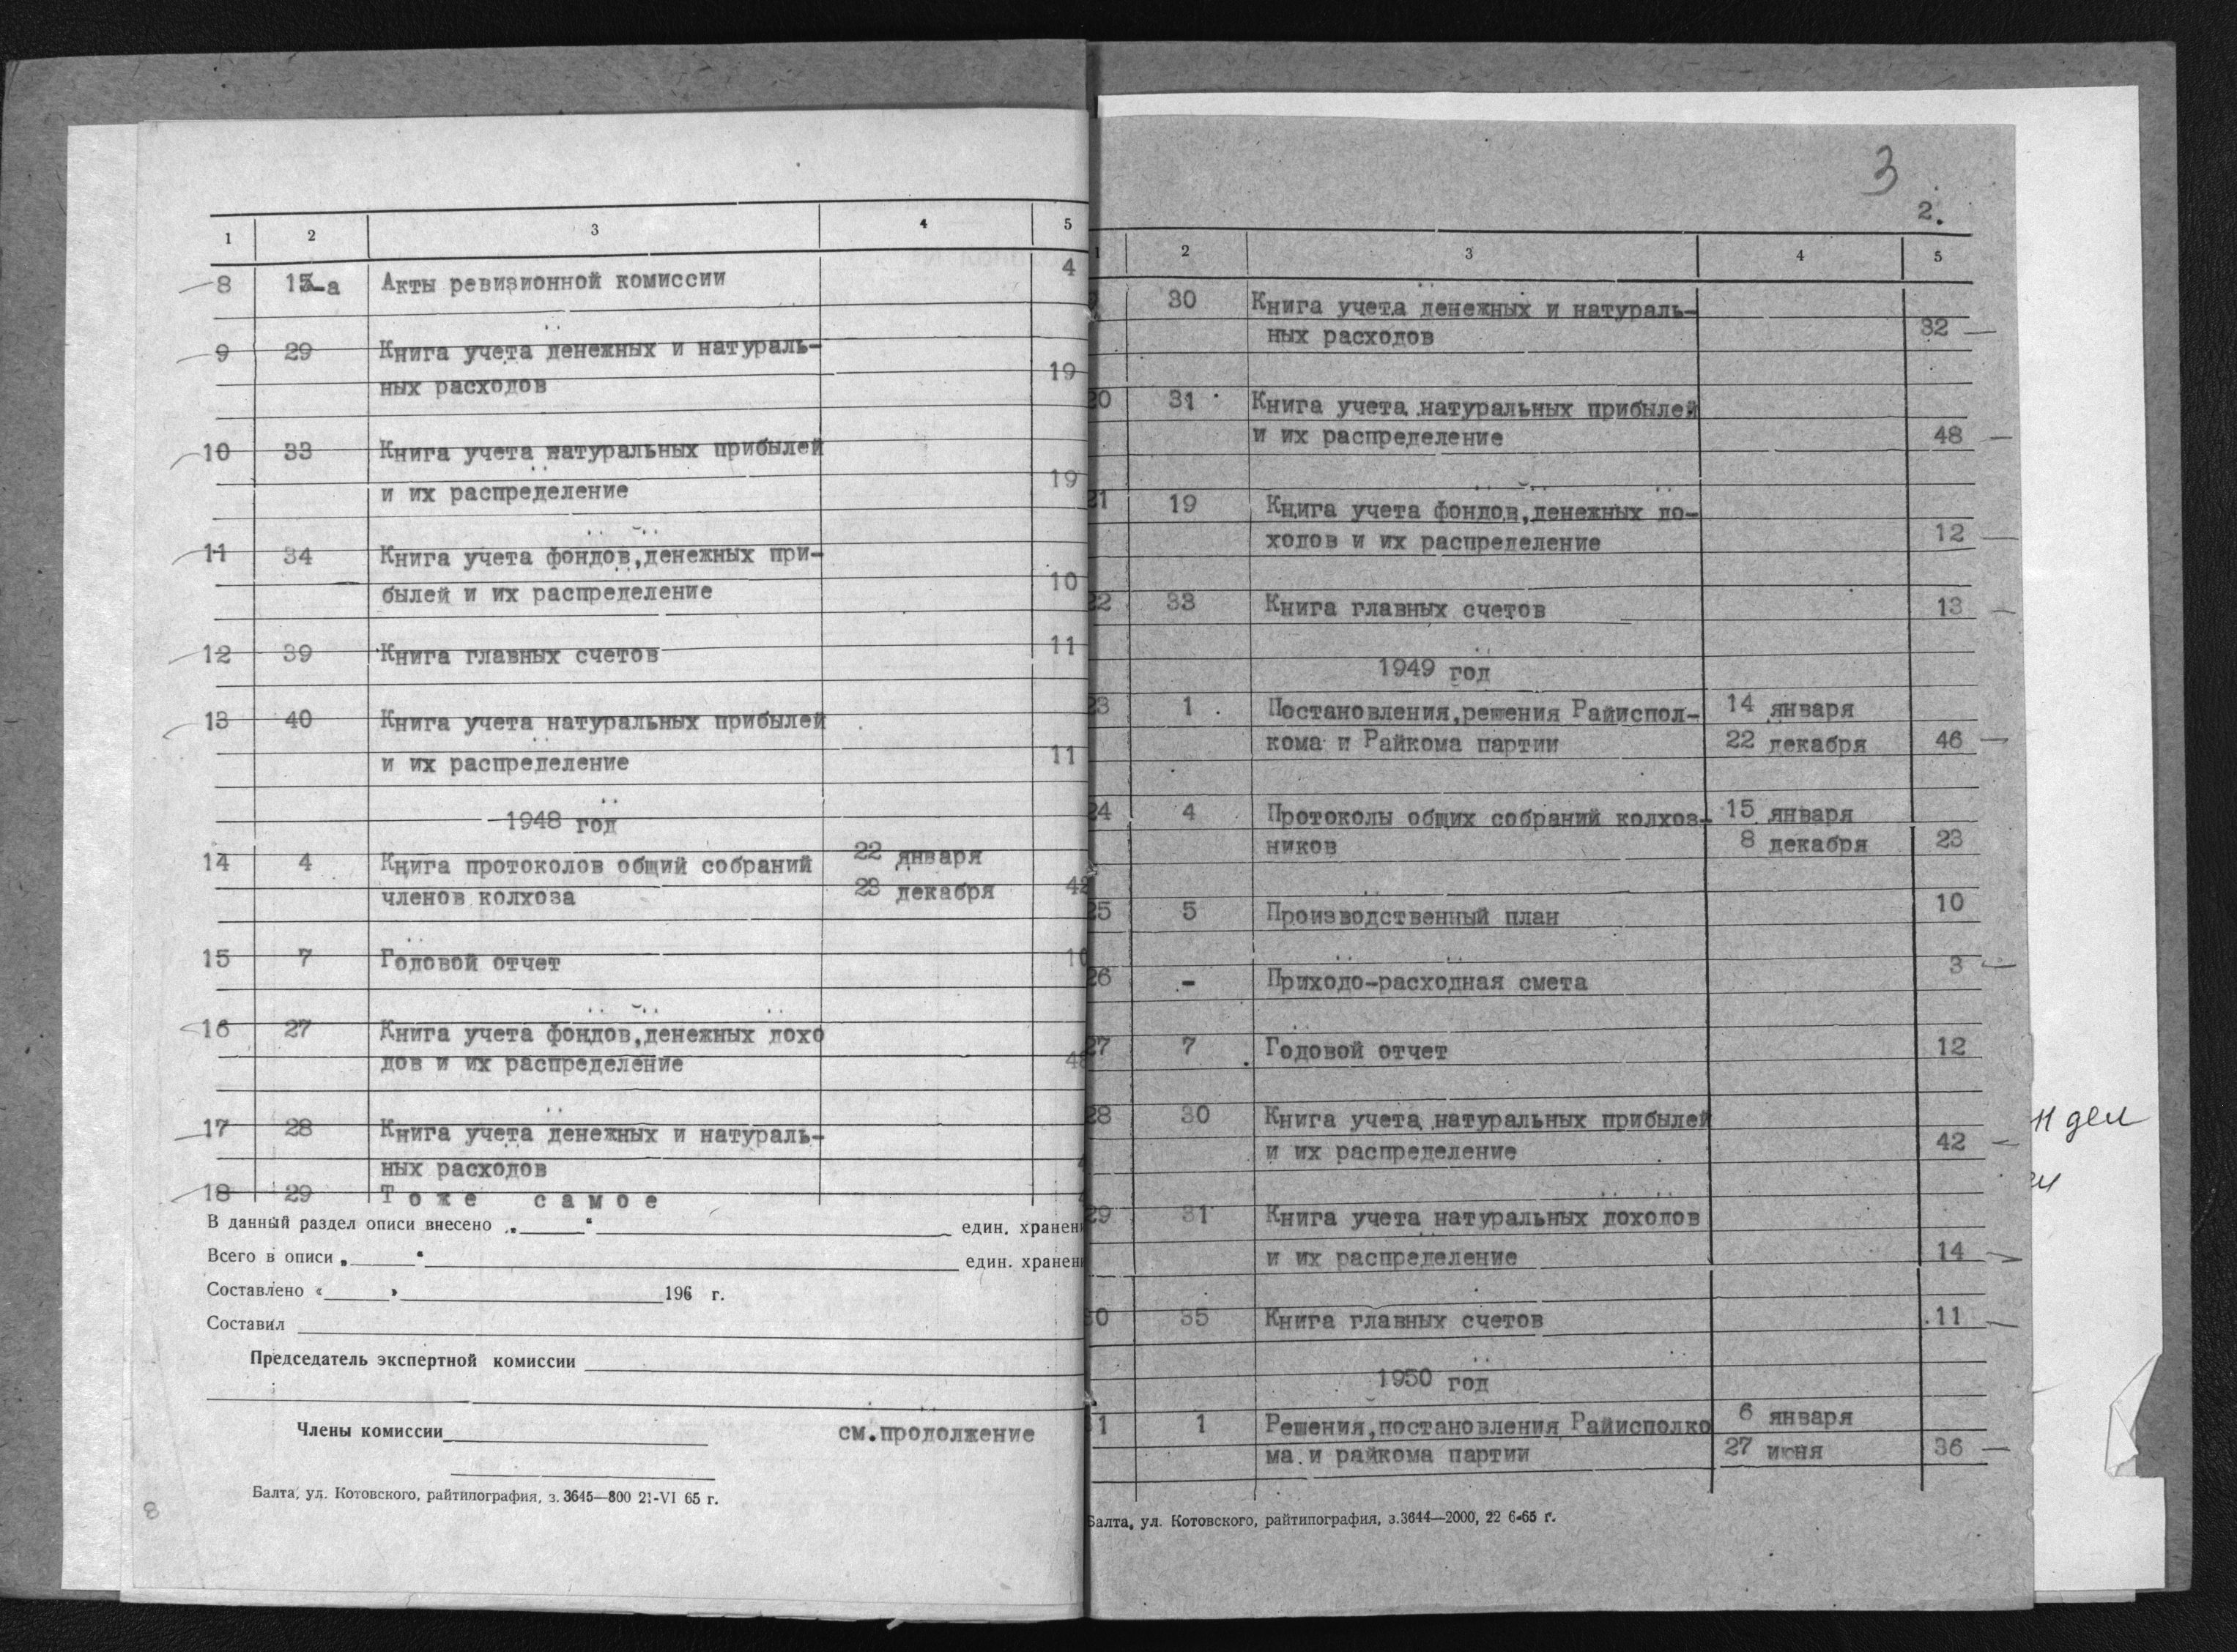 1 2 3 4 5
8 13-а Акты ревизионной комиссии 4
9 29 Книга учета денежных и натураль-
ных расходов 19
10 33 Книга учета натуральных прибылей
и их распределение 19
11 34 Книга учета фондов,денежных при-
былей и их распределение 10
12 39 Книга главных счетов 11
13 40 Книга учета натуральных прибылей
и их распределение 11
1948 год
14 4 Книга протоколов общий собраний 22 января
членов колхоза 23 декабря 42
15 7 Годовой отчет
16 27 Книга учета фондов,денежных дохо
дов и их распределение
17 28 Книга учета денежных и натураль-
ных расходов
18 29 Тоже самое
В данный раздел описи внесено „ “ един. хранен
Всего в описи „ “ един. хранен
Составлено « » 196 г.
Составил
Председатель экспертной комиссии
Члены комиссии
см.продолжение
Балта, ул. Котовского, райтипография, з. 3645—800 21-VI 65 г.
8
3
2.
1 2 3 4 5
30 Книга учета денежных и натураль-
ных расходов 32
20 31 Книга учета натуральных прибылей
и их распределение 48
21 19 Книга учета фондов,денежных до-
ходов и их распределение 12
22 33 Книга главных счетов 13
1949 год
23 1 Постановления,решения Райиспол- 14 января
кома и Райкома партии 22 декабря 46
24 4 Протоколы общих собраний колхоз- 15 января
ников 8 декабря 23
25 5 Производственный план 10
26 - Приходо-расходная смета 3
27 7 Годовой отчет 12
28 30 Книга учета натуральных прибылей
и их распределение 42
29 31 Книга учета натуральных доходов
и их распределение 14
30 35 Книга главных счетов 11
1950 год
1 1 Решения,постановления Райисполко 6 января
ма и райкома партии 27 июня 36
Балта, ул. Котовского, райтипография, з.3644—2000, 22 6-65 г.
дел